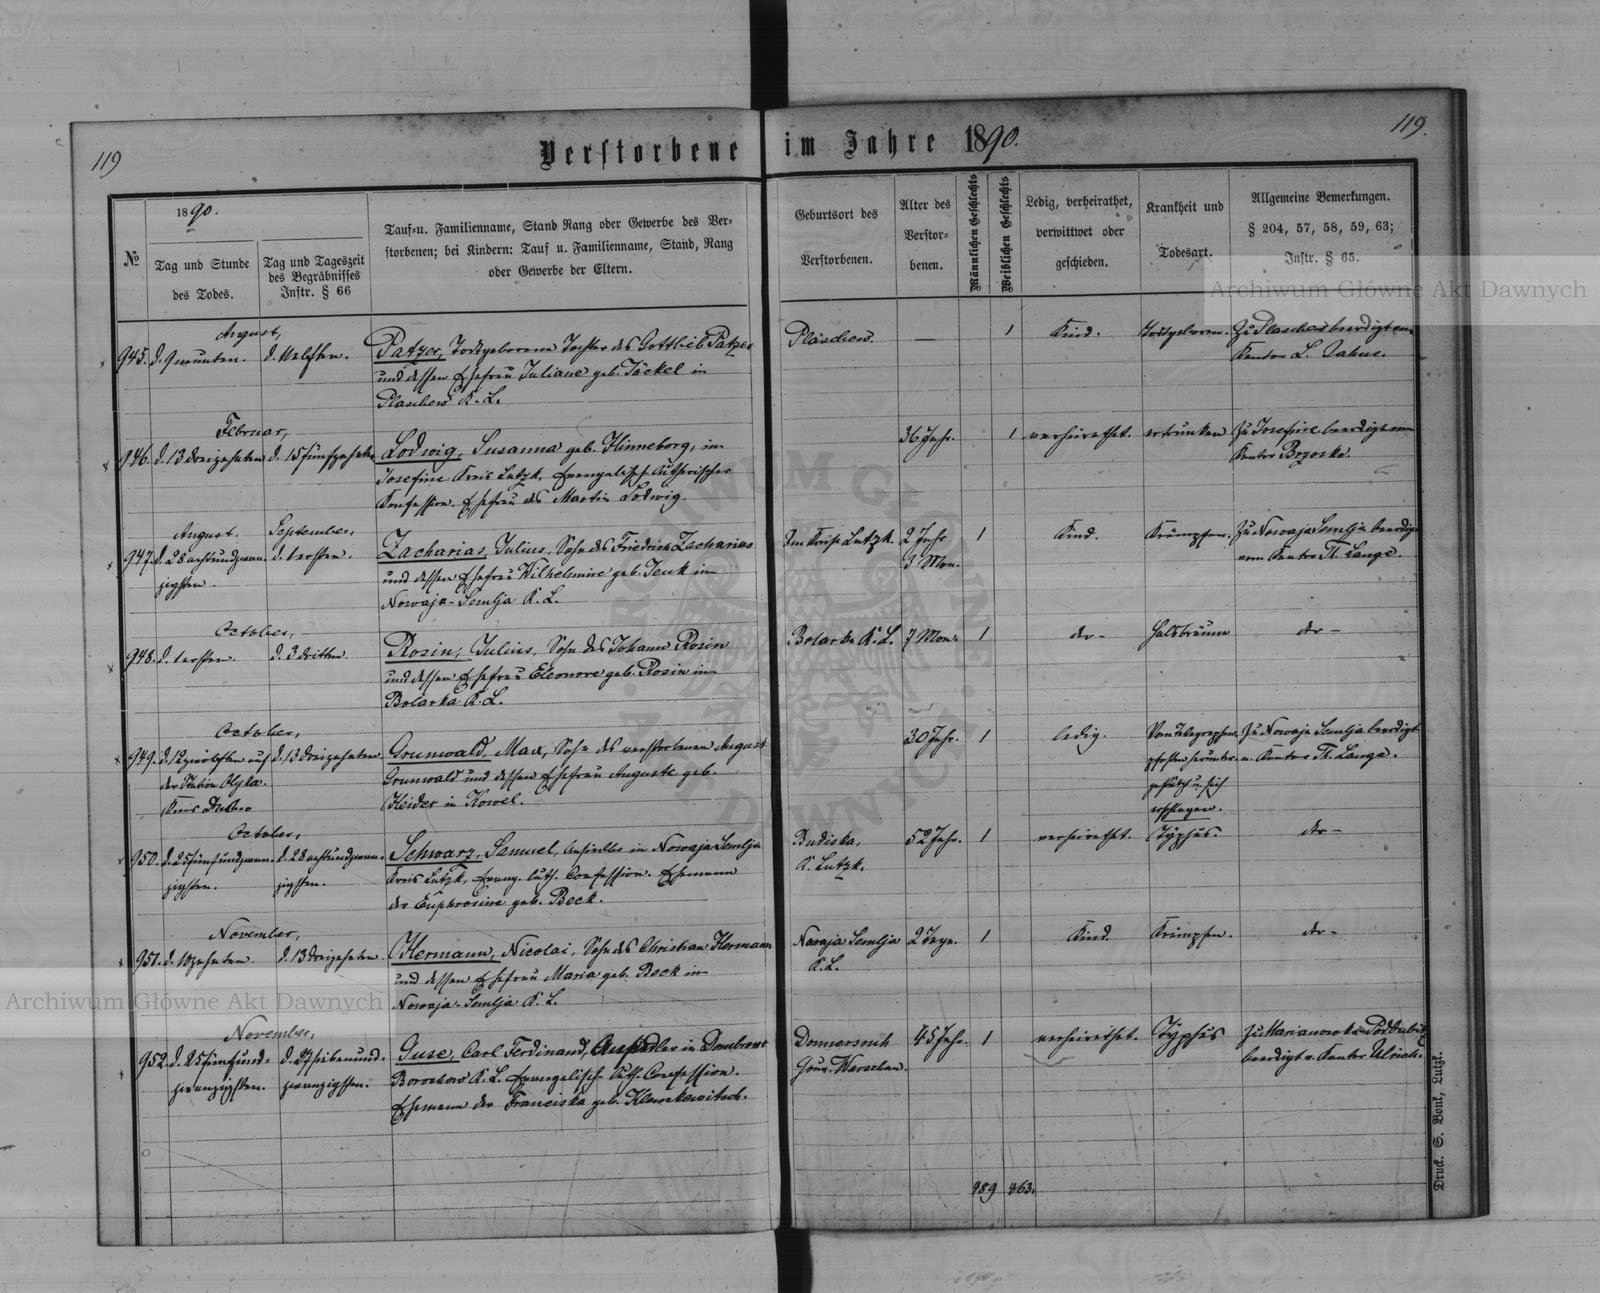 119
119.
Verstorbene im Jahre 1890.
№
1890.
Tag und Stunde
des Todes.
Tag und Tageszeit
des Begräbnisses
Instr. § 66
Tauf=u. Familienname, Stand Rang oder Gewerbe des Ver=
storbenen; bei Kindern: Tauf u. Familienname, Stand, Rang
oder Gewerbe der Eltern.
Geburtsort des
Verstorbenen.
Alter des
Verstor=
benen.
Männlichen Geschlechts
Weiblichen Geschlechts
Ledig, verheirathet,
verwittwet oder
geschieden.
Krankheit und
Todesart.
Allgemeine Bemerkungen.
§ 204, 57, 58, 59, 63;
Instr. § 65.
August,
945. d. 9 neunten. d. 11 elften.
Patzer, Todtgeborene Tochter des Gottlieb Patzer
und dessen Ehefrau Juliane geb. Jäckel in
Plaschew K. L.
Pläschew. — 1 Kind. Todtgeboren. Zu Plaschew beerdigt vom
Kantor L. Jahns.
Februar,
946. d. 13 dreizehnten d. 15 fünfzehnten
Lodwig, Susanna geb. Hinneborg, in
Josefine Kreis Lutzk, Evangelisch Lutherischer
Konfession. Ehefrau des Martin Lodwig.
36 Jahr. 1 verheirathet. ertrunken Zu Josefine beerdigt vom
Kantor Brzoska.
August. September,
947. d. 28 achtundzwan- d. 1 ersten.
zigsten.
Zacharias, Julius, Sohn des Friedrich Zacharias
und dessen Ehefrau Wilhelmine geb. Jeuk in
Nowaja-Semlja K. L.
Im Kreise Lutzk. 2 Jahr 1 Kind. Krämpfen. Zu Nowaja Semlja beerdigt
3 Mon. vom Kantor Th. Lange.
October,
948. d. 1 ersten. d. 3 dritten.
Rosin, Julius, Sohn des Johann Rosin
und dessen Ehefrau Eleonore geb. Rosin in
Bolarka K. L.
Bolarka K. L. 7 Mon. 1 der- Halsbräune der-
October,
949. d. 12 zwölften auf d. 13 dreizehnten.
der Station Olyka.
Kreis Dubno
Grunwald, Max, Sohn des verstorbenen August
Grunwald und dessen Ehefrau Auguste geb.
Heider in Kowel.
30 Jahr. 1 ledig. Vom Telegraphen- Zu Nowaja Semlja beerdigt
pfosten herunter v. Kantor Th. Lange.
gestürzt u. sich
erschlagen.
October,
950. d. 25 fünfundzwan- d. 28 achtundzwan-
zigsten. zigsten.
Schwarz, Samuel, Ansiedler in Nowaja Semlja
Kreis Lutzk, Evang. Luth. Confession. Ehemann
der Euphrosine geb. Beck.
Budiska, 52 Jahr. 1 verheirathet. Typhus der-
K. Lutzk.
November,
951. d. 10 zehnten. d. 13 dreizehnten.
Hermann, Nicolai, Sohn des Christian Hermann
und dessen Ehefrau Maria geb. Beck in
Nowaja-Semlja K. L.
Nowaja Semlja 2 Tage. 1 Kind. Krämpfen. der-
K. L.
November,
952. d. 25 fünfund- d. 27 siebenund-
zwanzigsten. zwanzigsten.
Guse, Carl Ferdinand, Ansiedler in Dombrowo
K. L. Evangelisch-Luth. Confession.
Ehemann der Franciska geb.
45 Jahr. 1 verheirathet. Typhus Zu Marianowka
Gouv. Warschau. beerdigt v. Kantor Ulrich.
489 463.
Druck. S. Bonk, Lutzk.
Archiwum Główne Akt Dawnych
Archiwum Główne Akt Dawnych